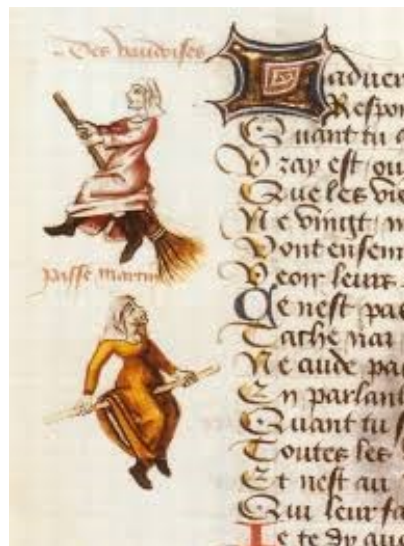 Des vaudoises
passe Martin
Laduer
Respon
Quant tu
Vray est ou
Que les vie
Ne vingt
Vont ensem
Veoir leurs
Ce nest pas
Tache nai
Ne cude pa
En parlant
Quant tu
Toutes les
Et nest au
Qui leur fa
Je te dy que